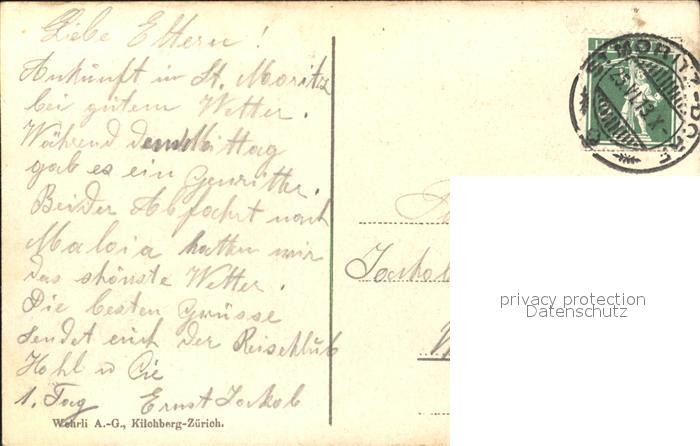 Liebe Eltern!
Ankunft in St. Moritz
bei gutem Wetter.
Während dem Mittag
gab es ein Gewitter.
Bei der Abfahrt nach
Maloia hatten wir
das schönste Wetter.
Die besten Grüsse
sendet euch der Reiseklub
Hohl u Cie
1. Tag Ernst Jackob
Wehrli A.-G., Kilchberg-Zürich.
ST. MORITZ-DORF
privacy protection
Datenschutz